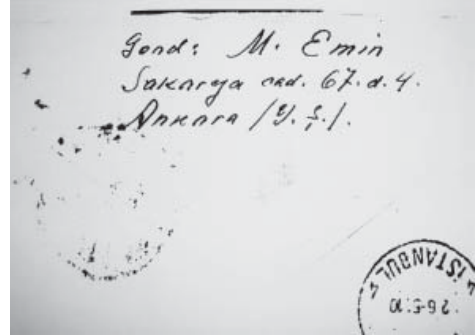 Gönd: M. Emin
Sakarya cad. 67. d. 4.
Ankara (Y. Ş.).
İSTANBUL